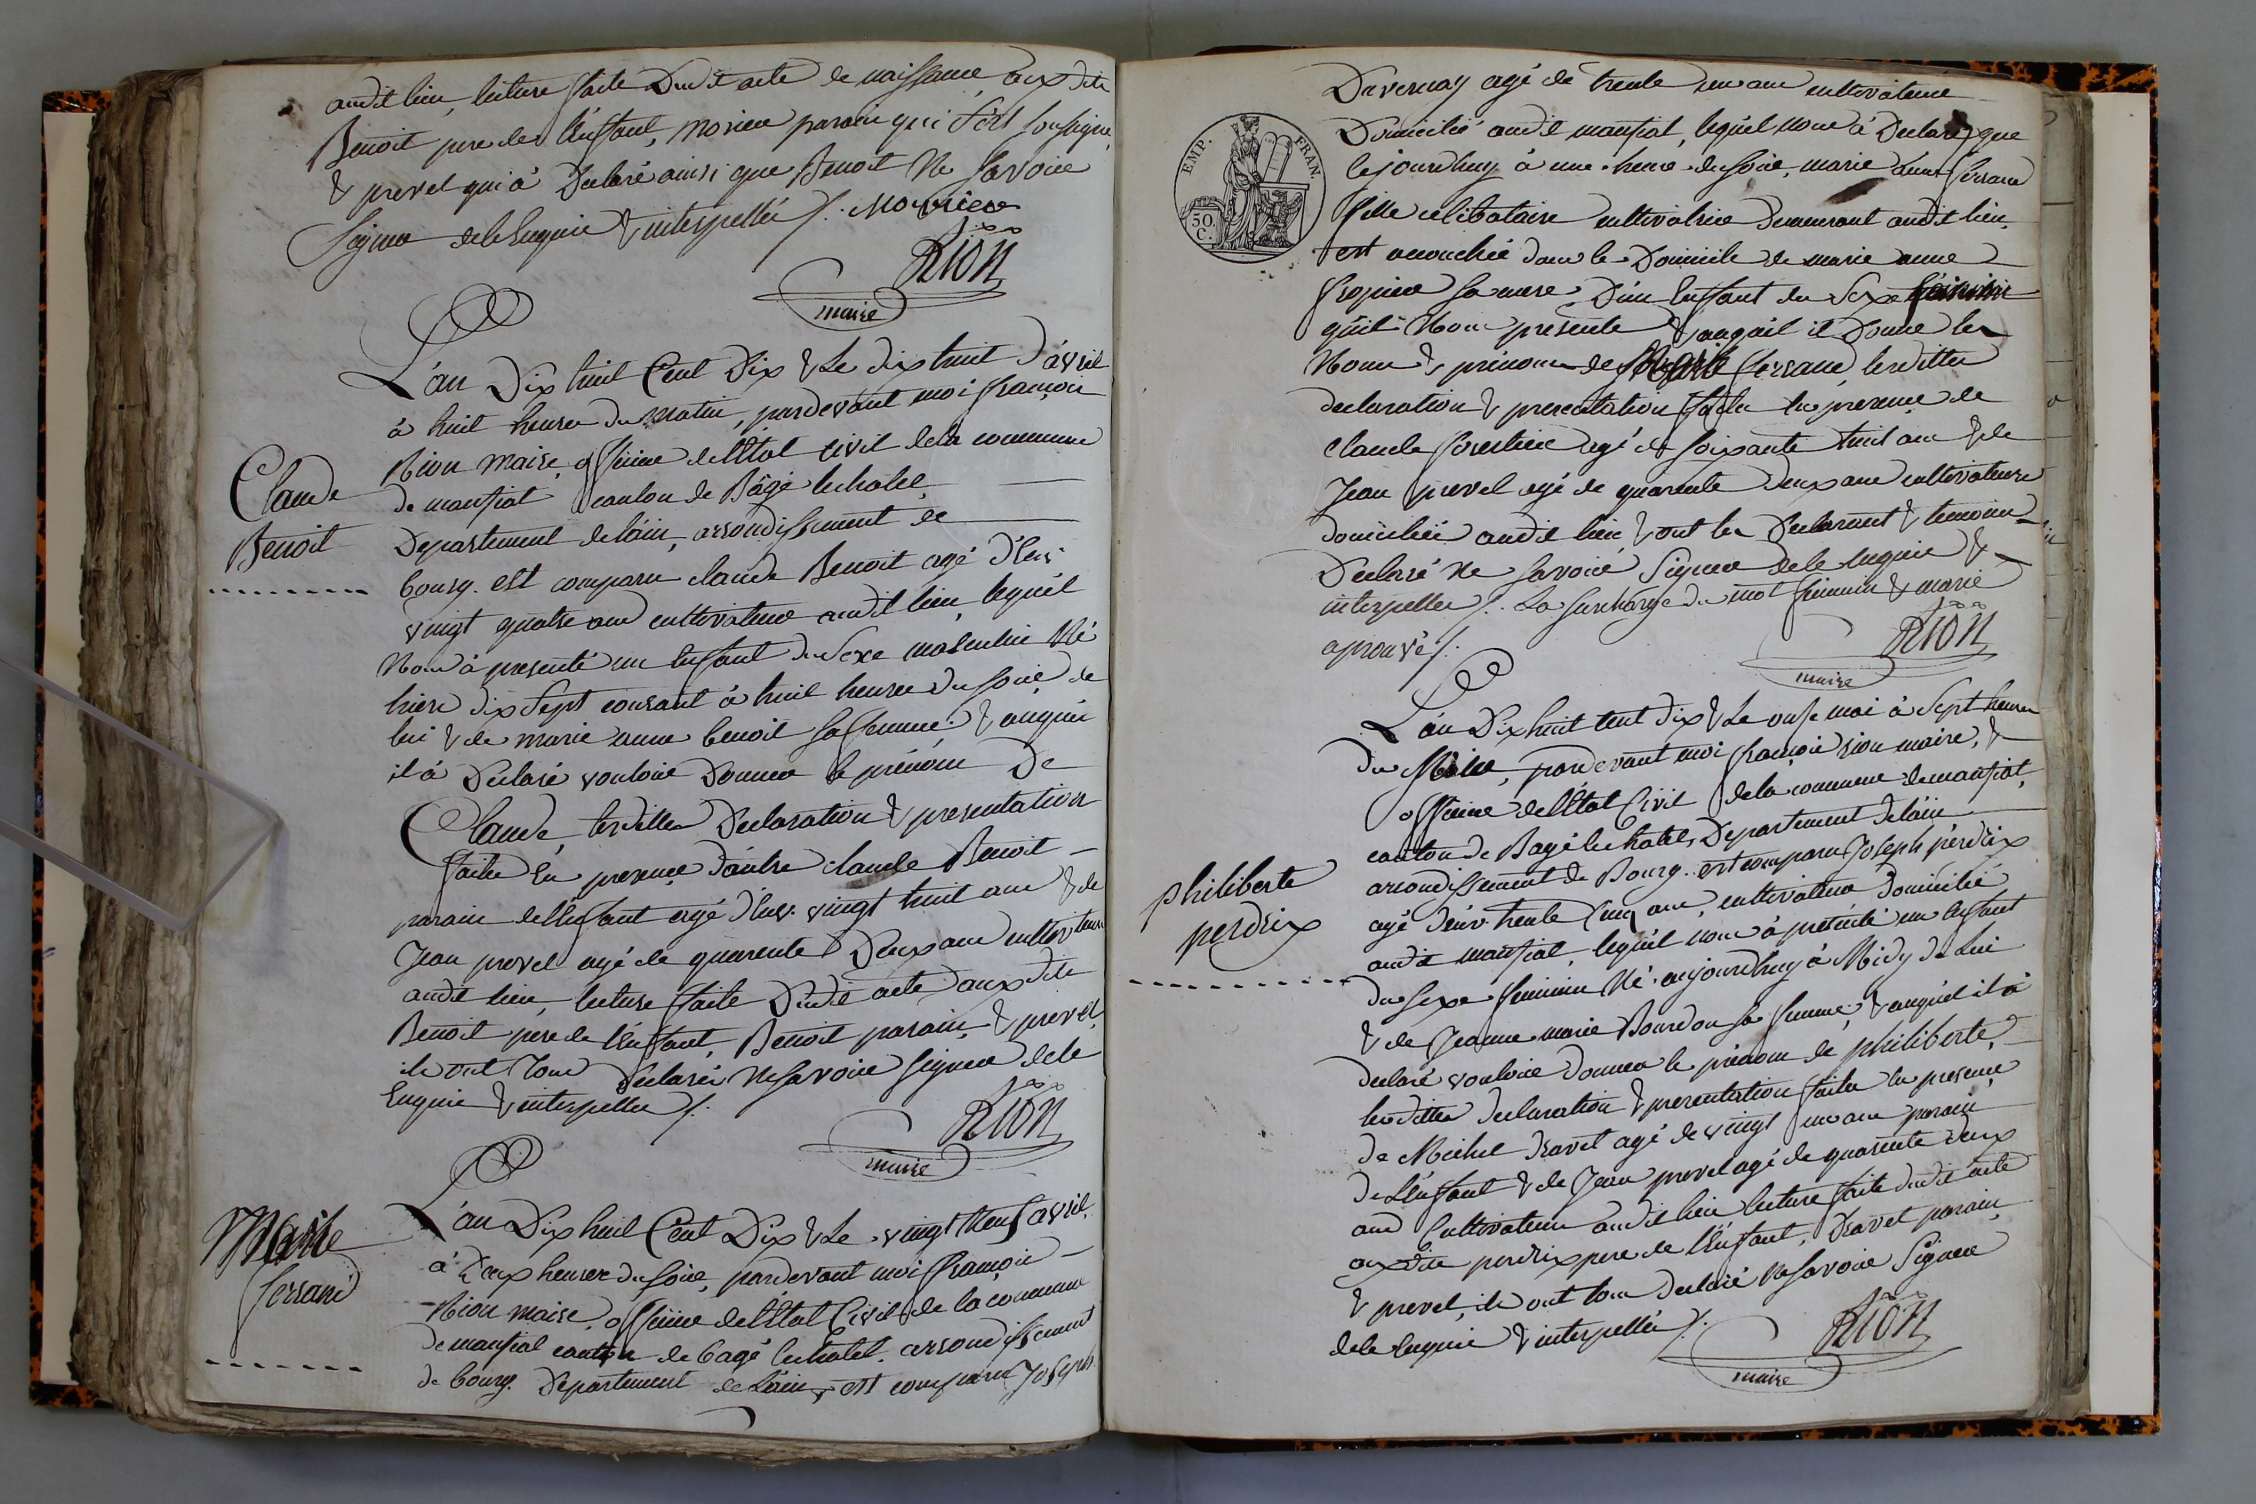 audit lieu, lecture faite Dudit acte de naissance, aux dits
Benoit pere de l'Enfant, Morier parain qui s'est soussigné,
& prevel qui à Declaré ainsi que Benoit Ne savoire
signer de le Enquis & interpellés /. Morier
Rion
maire
L'an Dix huit Cent Dix & Le dix huit d'avril
à huit heures du Matin, pardevant moi françois
Rion Maire, officier de l'Etat civil de la commune
de mansiat canton de Bâgé le chatel,
Departement de l'ain, arrondissement de
bourg. est comparu claude Benoit agé d'Env.
vingt quatre ans cultivateur audit lieu, lequel
Nous à presenté un Enfant du Sexe masculin Né
hiere dix Sept courant à huit heures du soire de
lui & de marie anne benoit sa femme, & auquel
il à Declaré vouloire Donner le prénom De
Claude, lesdittes Declaration & presentation
faites En presence d'autre claude Benoit
parain de l'Enfant agé d'Env. vingt huit ans & de
Jean prevel agé de quarente Deux ans cultivateurs
audit lieu, lecture faite Dudit acte auxdits
Benoit pere de l'Enfant, Benoit parain, & prevel,
ils ont Tous Declarés Ne savoire signer de le
Enquis & interpellés /.
Rion
maire
Claude
Benoit
L'an Dix huit Cent Dix & Le vingt Neuf avril.
à Deux heures du soire, pardevant moi françois
Rion maire, officier de l'Etat Civil de la commune
de mansiat canton de bagé le chatel. arrondissement
de bourg. Departement de L'ain, est comparu Joseph
Marie
ferrand
EMP. FRAN.
50 C.
Duvernay agé de trente un ans cultivateur
Domicilié audit mansiat, lequel nous à Declaré que
cejourdhuy à une heure du soire, marie anne ferrand
fille celibataire cultivatrice demeurant audit lieu,
est accouchée dans le Domicile de marie anne
sa mere, D'un Enfant du Sexe féminin
qu'il Nous presente & auquel il Donne les
Noms & prénoms de Marie ferrand, lesdittes
declaration & presentation faites En presence de
claude forestier agé de soixante huit ans & de
Jean prevel agé de quarente deux ans cultivateurs
domiciliés audit lieu & ont les Declarant & temoins
Declaré Ne savoire Signer de le Enquis &
interpellés /. La surcharge du mot féminin & marie
aprouvé /.
Rion
maire
L'an Dix huit cent dix & Le onse mai à Sept heures
du Soire, pardevant moi françois rion maire, &
officier de l'Etat Civil de la commune de mansiat,
canton de Bagé le chatel, Departement de l'ain
arrondissement de Bourg. est comparu Joseph perdrix
agé d'env. trente Cinq ans, cultivateur Domicilié
audit mansiat, lequel nous à presenté un Enfant
du sexe féminin Né aujourdhuy à Midy de Lui
& de Jeanne marie Bourdon sa femme, & auquel il à
declaré vouloire donner le prénom de philiberte,
lesdittes declaration & presentation faites En presence
de Michel Travet agé de vingt un ans parain
de L'Enfant & de Jean prevel agé de quarente deux
ans Cultivateurs audit lieu lecture faite dudit acte
auxdits perdrix pere de l'Enfant, Travet parain,
& prevel, ils ont tous declaré Ne savoire Signer
de le Enquis & interpellés /.
Rion
maire
philiberte
perdrix